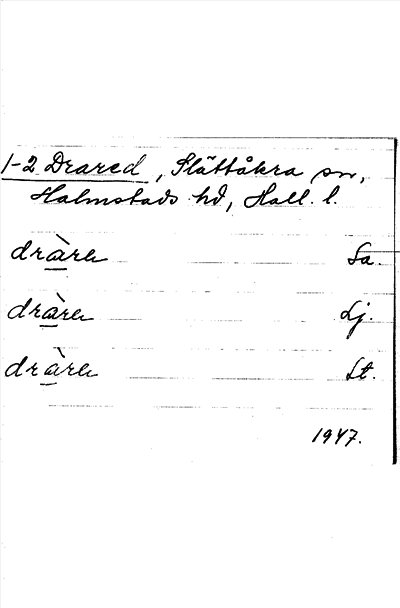 1-2 Drared, Slättåkra sn,
Halmstads hd, Hall. l.
drà̲rə Sa.
drà̲rə Lj.
drà̲rə St.
1947.